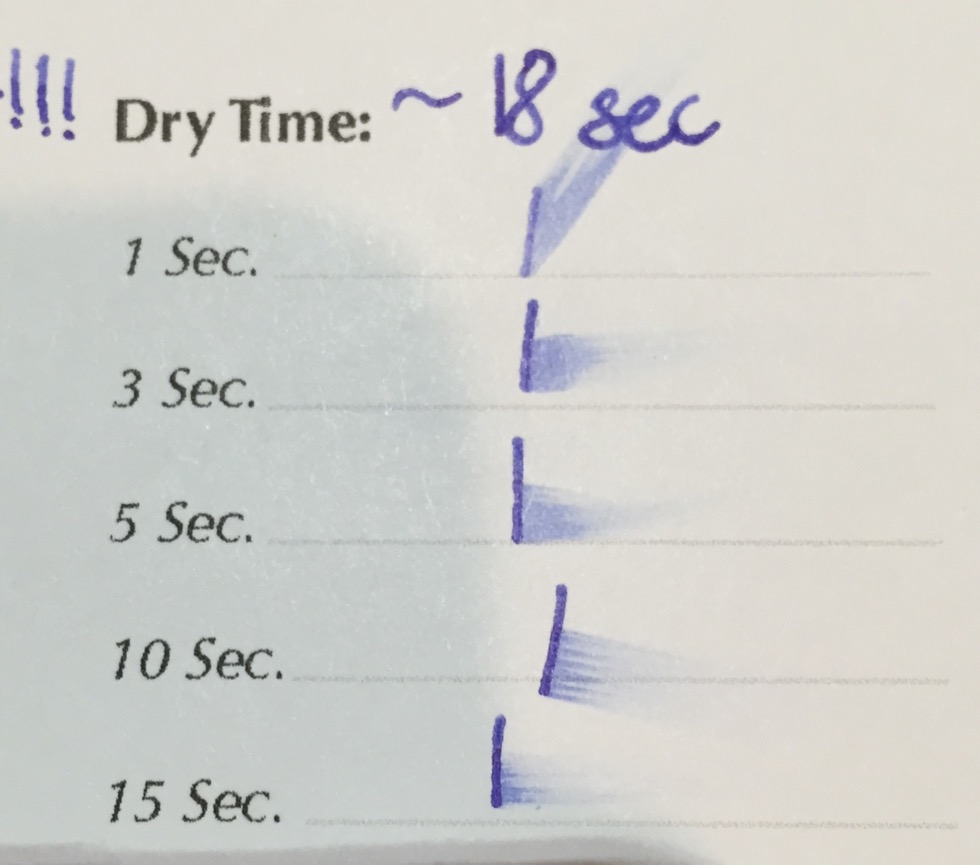 !!! Dry Time: ~ 18 sec
1 Sec.
3 Sec.
5 Sec.
10 Sec.
15 Sec.